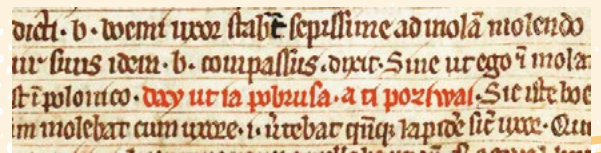 dicti · b · boemi uxor stabat sepissime ad molā molendo
uir suus idem · b · compassus · dixit · Sine ut ego ī mola
st ī polonico · day ut ia pobrusa · a ti poziwai · Sic iste boe
m molebat cum uxore · i · uertebat qͥnqꝫ lapidē sic̄ uxor · Qui